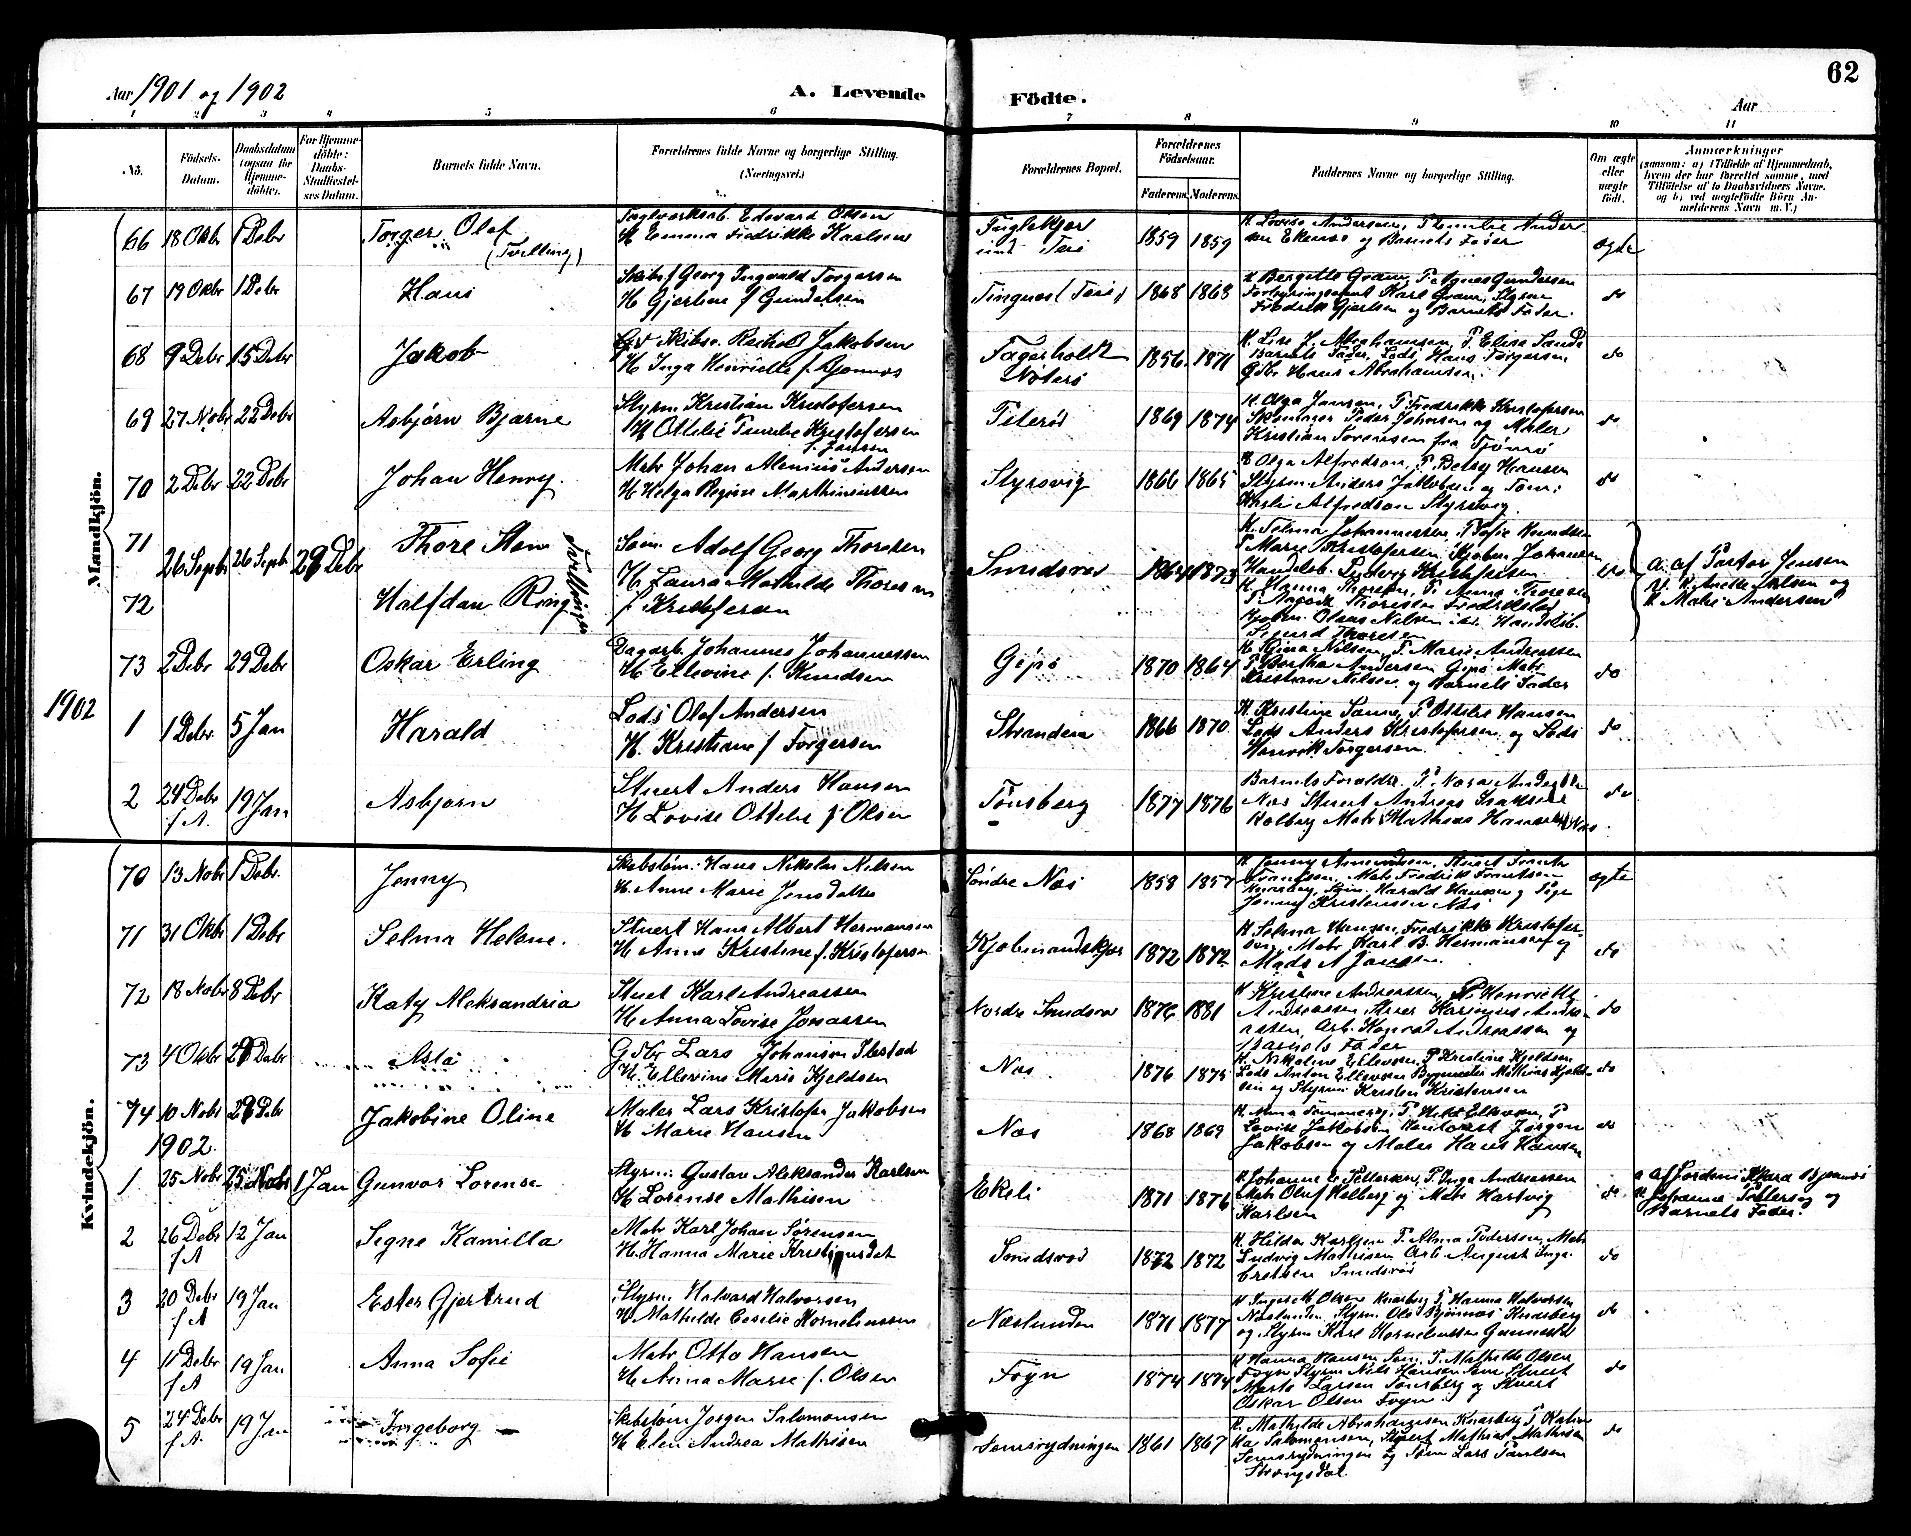 62
Aar 1901 og 1902
A. Levende Födte.
Aar
1 2 3 4 5 6 7 8 9 10 11
No.
Födsels-Datum.
Daabsdatum (ogsaa for Hjemme-döbte).
For Hjemme-döbte: Daabs-Stadfæstel-ses Datum.
Barnets fulde Navn.
Forældrenes fulde Navne og borgerlige Stilling. (Næringsvei.)
Forældrenes Bopæl.
Forældrenes Födselsaar.
Faderens. Moderens.
Faddernes Navne og borgerlige Stilling.
Om ægte eller uægte födt.
Anmærkninger (saasom: a) i Tilfælde af Hjemmedaab, hvem der har forrettet samme, med Tilföielse af to Daabsvidners Navne, og b) ved uægtefödte Börn Anmelderens Navn m. V.)
Mandkjön.
66 18 Okbr 1 Debr Torger Olaf (Tvilling)
Teglverksarb. Edvard Olsen
H Emma Fredrikke Karlsen
Fuglekjær Teie 1859 1859
K. Lovise Andersen, P. Emilie Andersen Ekenes og Barnets Fader
ægte
67 19 Okbr 1 Debr Hans
Skibsf Georg Ingvald Torgersen
H Gjertine f Gundersen
Tingnes (Teie) 1868 1868
K Bergitte Gram, P. Agnes Gundersen
Karl Gram, Styrm
Fredrik Gjertsen og Barnets Fader.
do
68 9 Debr 15 Debr Jakob
Skibsr. Jakobsen
H Inga Henriette f. Bjønnes
Fagerholdt Nøterø 1856 1871
K. Lise J. Abrahamsen, P. Elise Sande
Barnets Fader, Lods Hans Torgersen
Gdbr Hans Abrahamsen.
do
69 27 Nobr 22 Debr Asbjørn Bjarne
Styrm. Kristian Kristofersen
H Ottilie Emilie Kristofersen f. Jansen
Feterød 1869 1874
K. Olga Jansen, P Fredrikke Kristofersen
Peder Johnsen og Maler
Kristian Sørensen fra Tjømø
do
70 2 Debr 22 Debr Johan Henry.
Matr Johan Alenius Andersen
H Helga Regine Marthiniussen
Styrsvig 1866 1865
K Olga Alfredson, P. Betsy Hansen
Styrm Anders Jakobsen og Tøm:
Karl Alfredson Styrsvig.
do
71 Thore Sten
72 Halfdan Ring
Tvillinger
26 Septbr 26 Septbr 29 Debr
Søm. Adolf Georg Thoresen
H. Laura Mathilde Thoresen
f. Kristofersen
Smidsrød 1864 1873
K. Selma Johannessen, P Sofie Knudsen
P Marie Kristofersen, Kjøbm. Johansen
Handelsb. Kristofersen
K. Hanna Thoresen, P. Anna Thoresen
Kjøbm. Olaus Nilsen Handelsb.
Sigurd Thoresen
a. af Pastor Jensen
V. K. Anette Nilsen og
K Matr Andersen
73 2 Debr 29 Debr Oskar Erling
Dagarb. Johannes Johannessen
H Ellevine f. Knudsen
Gipø 1870 1864
K. Gina Nilsen, P. Marie Andreassen
P. Bertha Andersen Gipø Matr.
Kristian Nilsen og Barnets Fader
do
1902
1 1 Debr 5 Jan Harald
Lods Olaf Andersen
H. Kristiane f Torgersen
Stranden 1866 1870
K. Kristine Sanne, P. Ottilie Hansen
Lods Anders Kristofersen og Lods
Henrik Torgersen
do
2 24 Debr f.A. 19 Jan Asbjørn
Stuert Anders Hansen
H Lovise Ottilie f Olsen
Tønsberg 1877 1876
Barnets Forældre. P. Nora Andersen
Næs Stuert Andreas Isaksen
Kolberg Matr Mathias Hansen Næs.
do
Kvindekjön.
70 13 Nobr 1 Debr. Jenny
Skibstøm. Hans Nikolai Nilsen
H. Anne Marie Jensdatter
Søndre Næs 1858 1857
K Jenny Amundsen, Stuert
Frantsen, Matr Fredrik Frantsen
Knarberg, Tøm. Harald Hansen og Pige
Jenny Kristensen Næs
ægte
71 31 Okbr 1 Debr Selma Helene.
Stuert Hans Albert Hermansen
H. Anne Kristine f. Kristofersen
Kjøbmandskjær 1872 1872
K Selma Hansen, Fredrikke Kristofersen, Matr Karl B. Hermansen og
Mads A Jansen
do
72 18 Nobr 8 Debr Katy Aleksandria
Stuet Karl Andreassen
H Anna Lovise Jonassen
Nordre Smidsrød 1876 1881
K Kristine Andreassen, P. Henriette
Andreassen, Andreassen, Arb. Konrad Andreassen og
Barnets Fader
do
73 4 Okbr 29 Debr Asta
Gdbr Lars Johansen Ilestad
H. Ellevine Marie Kjeldsen
Næs 1876 1875
K. Nikoline Ellevsen, P Kristine Kjeldsen
Lods Anton Ellevsen Mathias Kjeldsen og Styrm Kristen Kristensen
do
74 10 Nobr 29 Debr Jakobine Oline
Maler Lars Kristofer Jakobsen
H. Marie Hansen
Næs 1868 1869
K. Anna P. Hilda Ellevsen, P
Lovise Jakobsen Jørgen
Jakobsen og Maler Hans Hansen
do
1902.
1 25 Nobr 25 Nobr 1 Jan Gunvor Lorense
Styrm: Gustav Aleksander Karlsen
H. Lorense Mathisen
Ekeli 1871 1876
K Johanne E. Pettersen, P. Inga Andreassen
Matr Oluf Holberg og Matr Hartvig
Karlsen
do
a af Jordemor Bjønnes
K Johanne Pettersen og
Barnets Fader.
2 26 Debr f.A 12 Jan Signe Kamilla
Matr Karl Johan Sørensen
H. Hanna Marie Kristiansdat
Smidsrød 1872 1872
K. Hilda Karlsen P. Alma Pedersen, Matr
Ludvig Mathisen Arb. August Ingebretsen Smidsrød
do
3 20 Debr f A 19 Jan Ester Gjertrud
Styrm Halvard Halvorsen
H Mathilde Cecilie Korneliussen
Næslunden 1871 1877
K Inger M Olsen Knarberg P Hanna Halvorsen
Næslunden Styrm Ole Bjønnes Knarberg
og Styrm Karl Kornelius
do
4 11 Debr f A 19 Jan Anna Sofie
Matr Otto Hansen
H. Anna Marie f. Olsen
Føyn 1874 1874
K Hanna Hansen Sem, P. Mathilde Olsen
Føyn Styrm Nils Hansen Sem Stuert
Larsen Tønsberg og Stuert
Oskar Olsen Føyn
do
5 24 Debr f A. 19 Jan Ingeborg
Skibstøm Jørgen Salomonsen
H Elen Andrea Mathisen
Semsrydningen 1861 1867
K. Mathilde Abrahamsen Knarberg P. Katrine
Salomonsen, Stuert Mathias Mathisen
Semsrydningen og Tøm Lars Paulsen
Strengsdal.
do